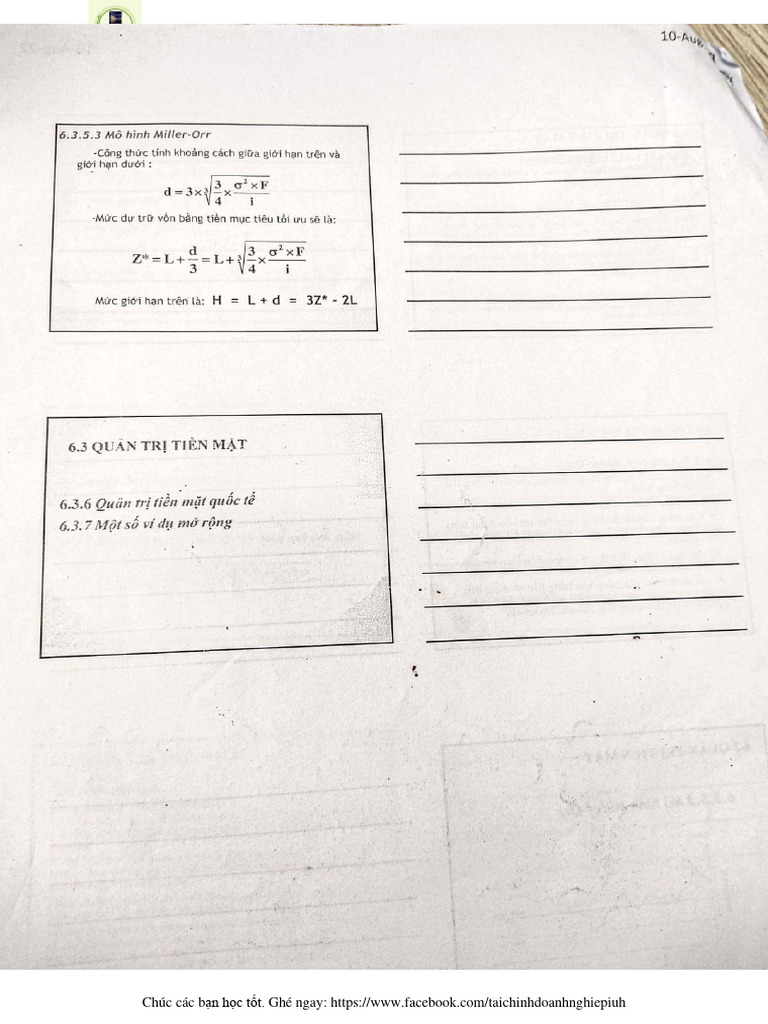 10-Aug
6.3.5.3 Mô hình Miller-Orr
-Công thức tính khoảng cách giữa giới hạn trên và
giới hạn dưới :
d = 3 × ∛(3/4 × (σ² × F)/i)
-Mức dự trữ vốn bằng tiền mục tiêu tối ưu sẽ là:
Z* = L + d/3 = L + ∛(3/4 × (σ² × F)/i)
Mức giới hạn trên là: H = L + d = 3Z* - 2L
6.3 QUẢN TRỊ TIỀN MẶT
6.3.6 Quản trị tiền mặt quốc tế
6.3.7 Một số ví dụ mở rộng
Chúc các bạn học tốt. Ghé ngay: https://www.facebook.com/taichinhdoanhnghiepiuh